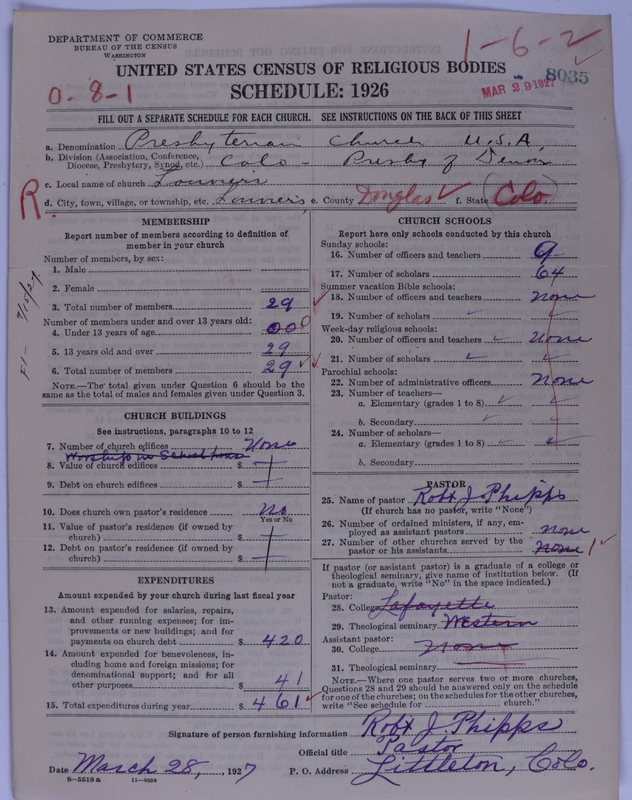 DEPARTMENT OF COMMERCE
BUREAU OF THE CENSUS
WASHINGTON
1-6-2
UNITED STATES CENSUS OF RELIGIOUS BODIES
8035
MAR 29 1927
0-8-1
SCHEDULE: 1926
FILL OUT A SEPARATE SCHEDULE FOR EACH CHURCH. SEE INSTRUCTIONS ON THE BACK OF THIS SHEET
a. Denomination Presbyterian Church U.S.A.
b. Division (Association, Conference, Diocese, Presbytery, Synod, etc.) Colo - Presby of Denver
c. Local name of church Louviers
R
d. City, town, village, or township, etc. Louviers e. County Douglas f. State (Colo.)
MEMBERSHIP
Report number of members according to definition of
member in your church
Number of members, by sex:
1. Male
2. Female
3. Total number of members 29
Number of members under and over 13 years old:
4. Under 13 years of age 00
5. 13 years old and over 29
6. Total number of members 29
NOTE.—The total given under Question 6 should be
same as the total of males and females given under Question 3.
CHURCH BUILDINGS
See instructions, paragraphs 10 to 12
7. Number of church edifices None
Worships in School house
8. Value of church edifices $
9. Debt on church edifices $
10. Does church own pastor's residence No
Yes or No
11. Value of pastor's residence (if owned by
church) $
12. Debt on pastor's residence (if owned by
church) $
EXPENDITURES
Amount expended by your church during last fiscal year
13. Amount expended for salaries, repairs,
and other running expenses; for im-
provements or new buildings; and for
payments on church debt $ 420
14. Amount expended for benevolences, in-
cluding home and foreign missions; for
denominational support; and for all
other purposes $ 41
15. Total expenditures during year $ 461
CHURCH SCHOOLS
Report here only schools conducted by this church
Sunday schools:
16. Number of officers and teachers 9
17. Number of scholars 64
Summer vacation Bible schools:
18. Number of officers and teachers None
19. Number of scholars
Week-day religious schools:
20. Number of officers and teachers None
21. Number of scholars
Parochial schools:
22. Number of administrative officers None
23. Number of teachers—
a. Elementary (grades 1 to 8)
b. Secondary
24. Number of scholars—
a. Elementary (grades 1 to 8)
b. Secondary
PASTOR
25. Name of pastor Robt J. Phipps
(If church has no pastor, write "None")
26. Number of ordained ministers, if any, em-
ployed as assistant pastors None
27. Number of other churches served by the
pastor or his assistants None 1
If pastor (or assistant pastor) is a graduate of a college or
theological seminary, give name of institution below. (If
not a graduate, write "No" in the space indicated.)
Pastor:
28. College Lafayette
29. Theological seminary Western
Assistant pastor:
30. College None
31. Theological seminary
NOTE.—Where one pastor serves two or more churches,
Questions 28 and 29 should be answered only on the schedule
for one of the churches; on the schedules for the other churches,
write "See schedule for church."
Signature of person furnishing information Robt J. Phipps
Official title Pastor
Date March 28, 1927 P. O. Address Littleton, Colo.
8-5518a 11-9564